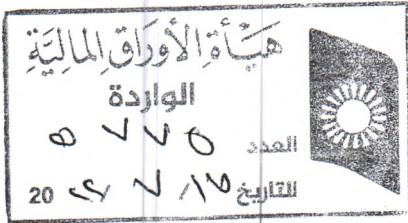 هيأة الأوراق المالية
الواردة
العدد ٥٧٧٥
التاريخ ٧ 20